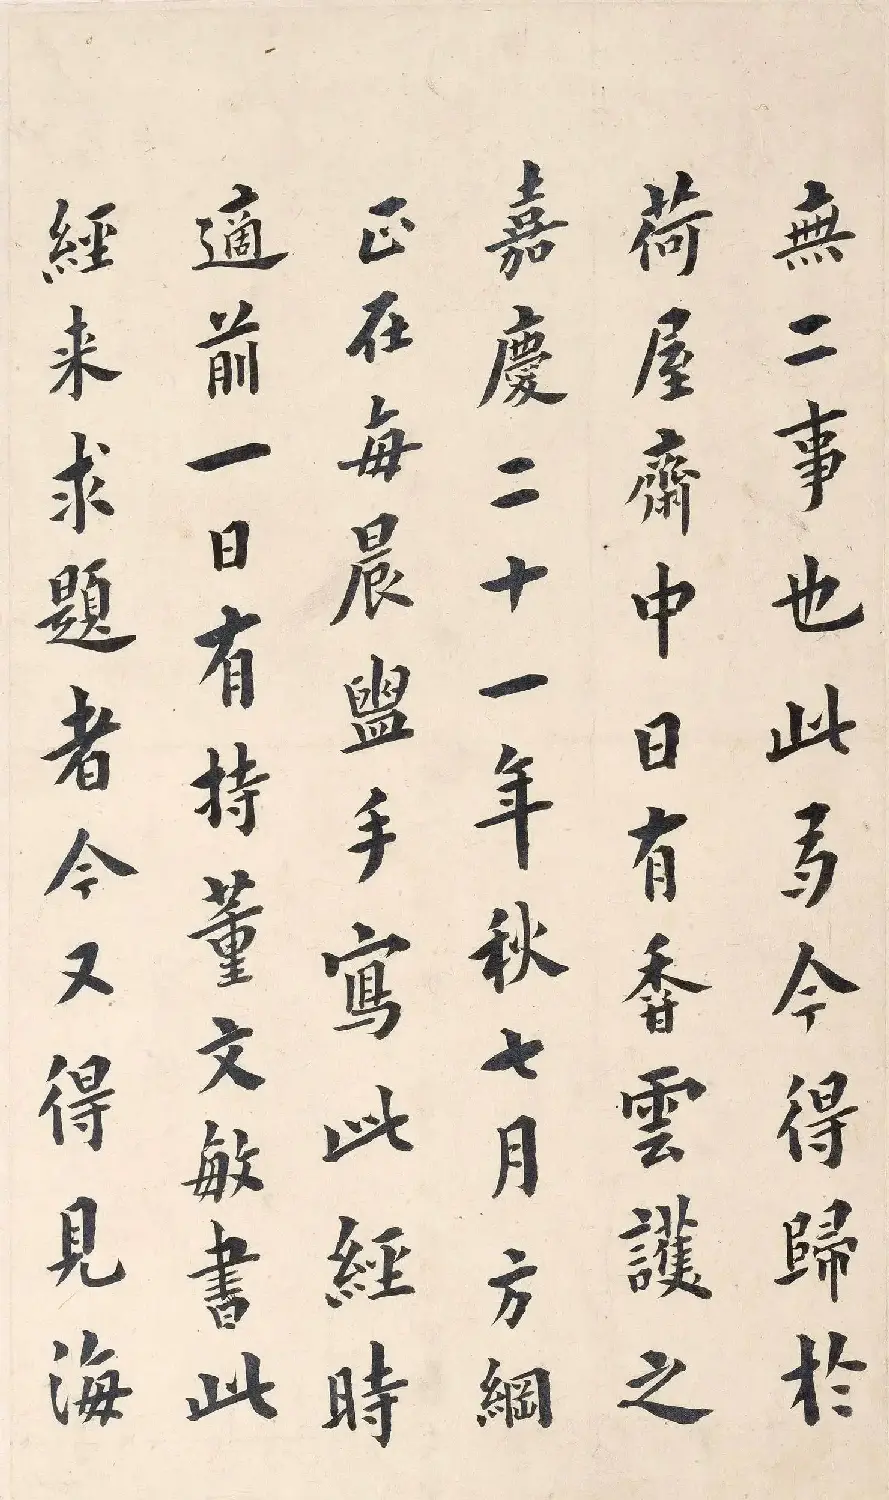 無二事也此今得歸於
荷屋齋中日有香雲護之
嘉慶二十一年秋七月方綱
正在每晨盥手寫此經時
適前一日有持董文敏書此
經来求題者今又得見海